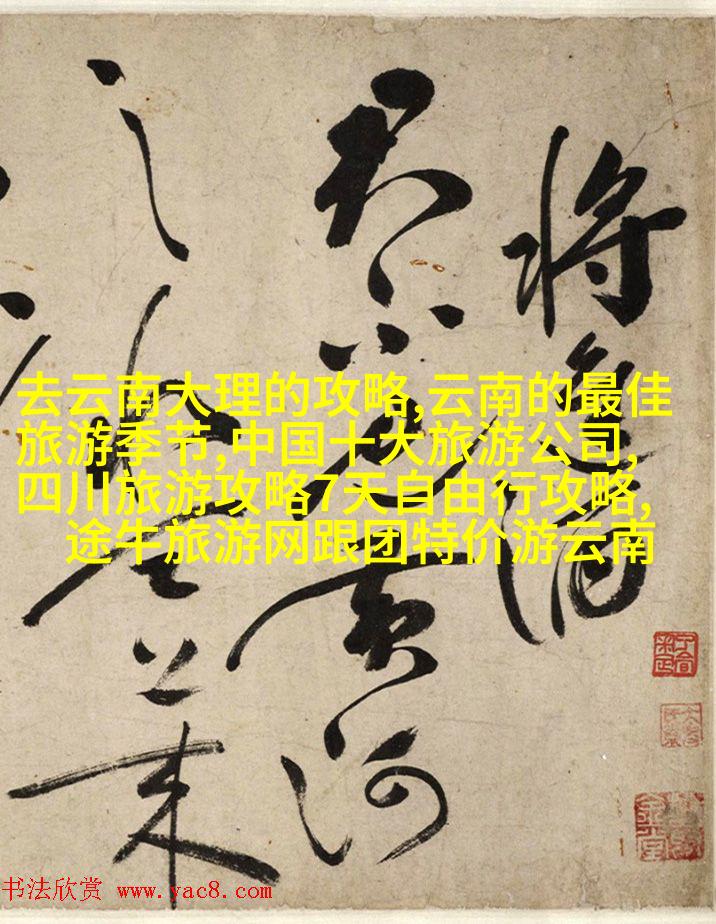 将进酒
君不见黄河
之水天上来
去云南大理的攻略,云南的最佳
旅游季节,中国十大旅游公司,
四川旅游攻略7天自由行攻略,
途牛旅游网跟团特价游云南
书法欣赏 www.yac8.com